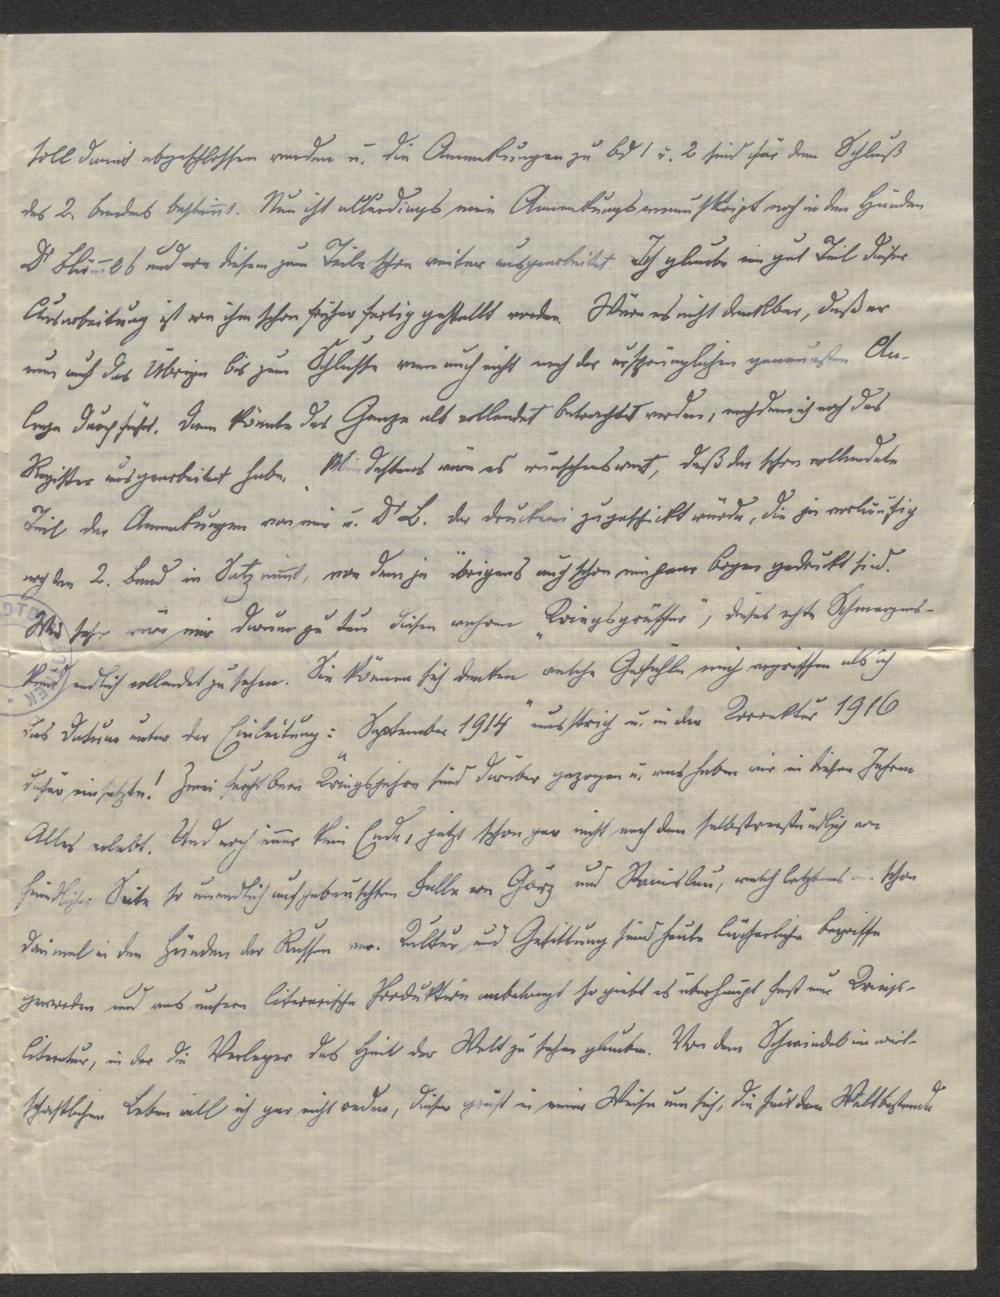 soll damit abgeschlossen werden u. die Anmerkungen zu Bd 1 u. 2 sind für den Schluß
des 2. Bandes bestimmt. Nun ist allerdings mein Anmerkungsmanuskript noch in den Händen
Dr Blümels und von diesem zum Teile schon weiter ausgearbeitet. Ich glaube ein gut Teil dieser
Ausarbeitung ist von ihm schon früher fertig gestellt worden. Wäre es nicht denkbar, daß er
nun auch das Übrige bis zum Schlusse wenn auch nicht nach der ursprünglichen genauesten An-
lage durchführt. Dann könnte das Ganze als vollendet betrachtet werden, nachdem ich noch das
Register ausgearbeitet habe. Mindestens wäre es wünschenswert, daß der schon vollendete
Teil der Anmerkungen von mir u. Dr B. der Druckerei zugeschickt würde, die ja vorläufig
noch den 2. Band in Satz nimmt, von dem ja übrigens auch schon ein paar Bogen gedruckt sind.
Wie sehr wäre mir darum zu tun diesen wahren „Kriegsgräffer", dieses echte Schmerzens-
kind endlich vollendet zu sehen. Sie können sich denken welche Gefühle mich ergriffen als ich
das Datum unter der Einleitung: „September 1914" ausstrich u. in der Korrektur 1916
dafür einsetzte! Zwei furchtbare Kriegsjahre sind darüber gezogen u. was haben wir in diesen Jahren
Alles erlebt. Und noch immer kein Ende, jetzt schon gar nicht nach dem selbstverständlich von
feindlicher Seite so unendlich aufgebauschten Falle von Görz und Stanislau, welch letzteres schon
dreimal in den Händen der Russen war. Kultur und Gesittung sind heute lächerliche Begriffe
geworden und was unsere literarische Produktion anbelangt so giebt es überhaupt fast nur Kriegs-
literatur, in der die Verleger das Heil der Welt zu sehen glauben. Von dem Schwindel im wirt-
schaftlichen Leben will ich gar nicht reden, dieser greift in einer Weise um sich, die seit dem Weltbestande